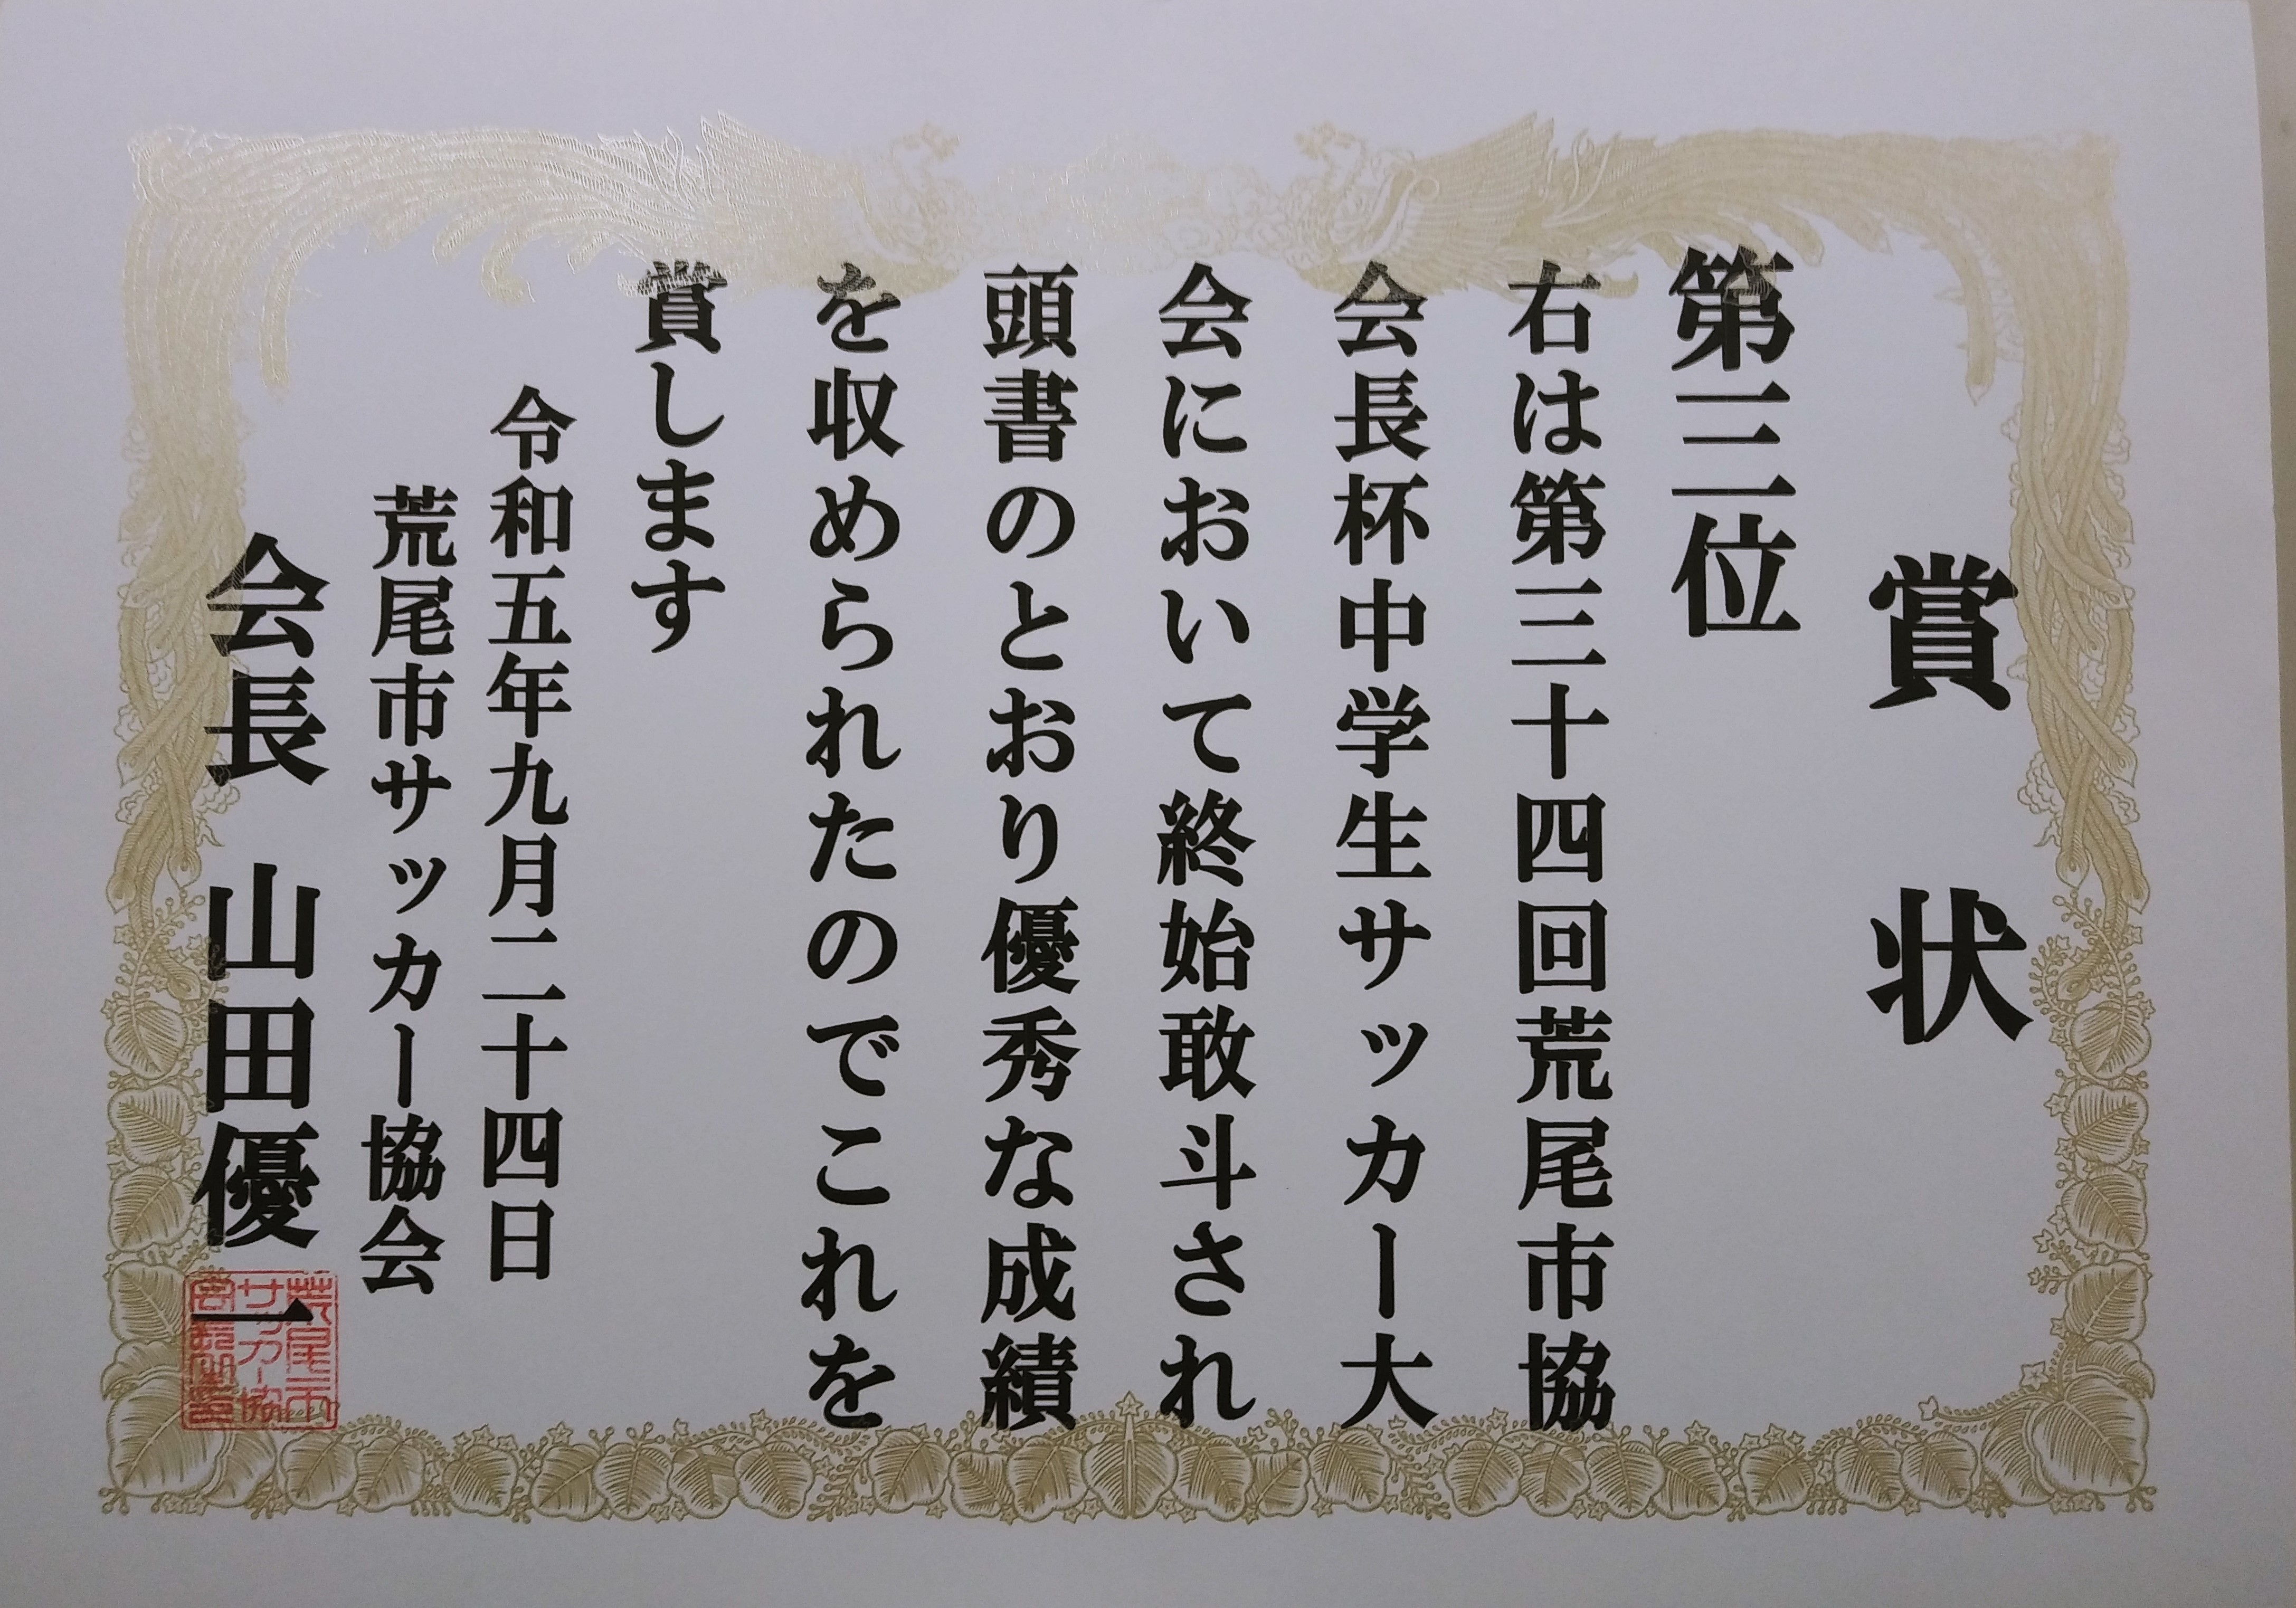 賞状
第三位
右は第三十四回荒尾市協
会長杯中学生サッカー大
会において終始敢斗され
頭書のとおり優秀な成績
を収められたのでこれを
賞します
令和五年九月二十四日
荒尾市サッカー協会
会長 山田優一
荒尾市
サッカー協